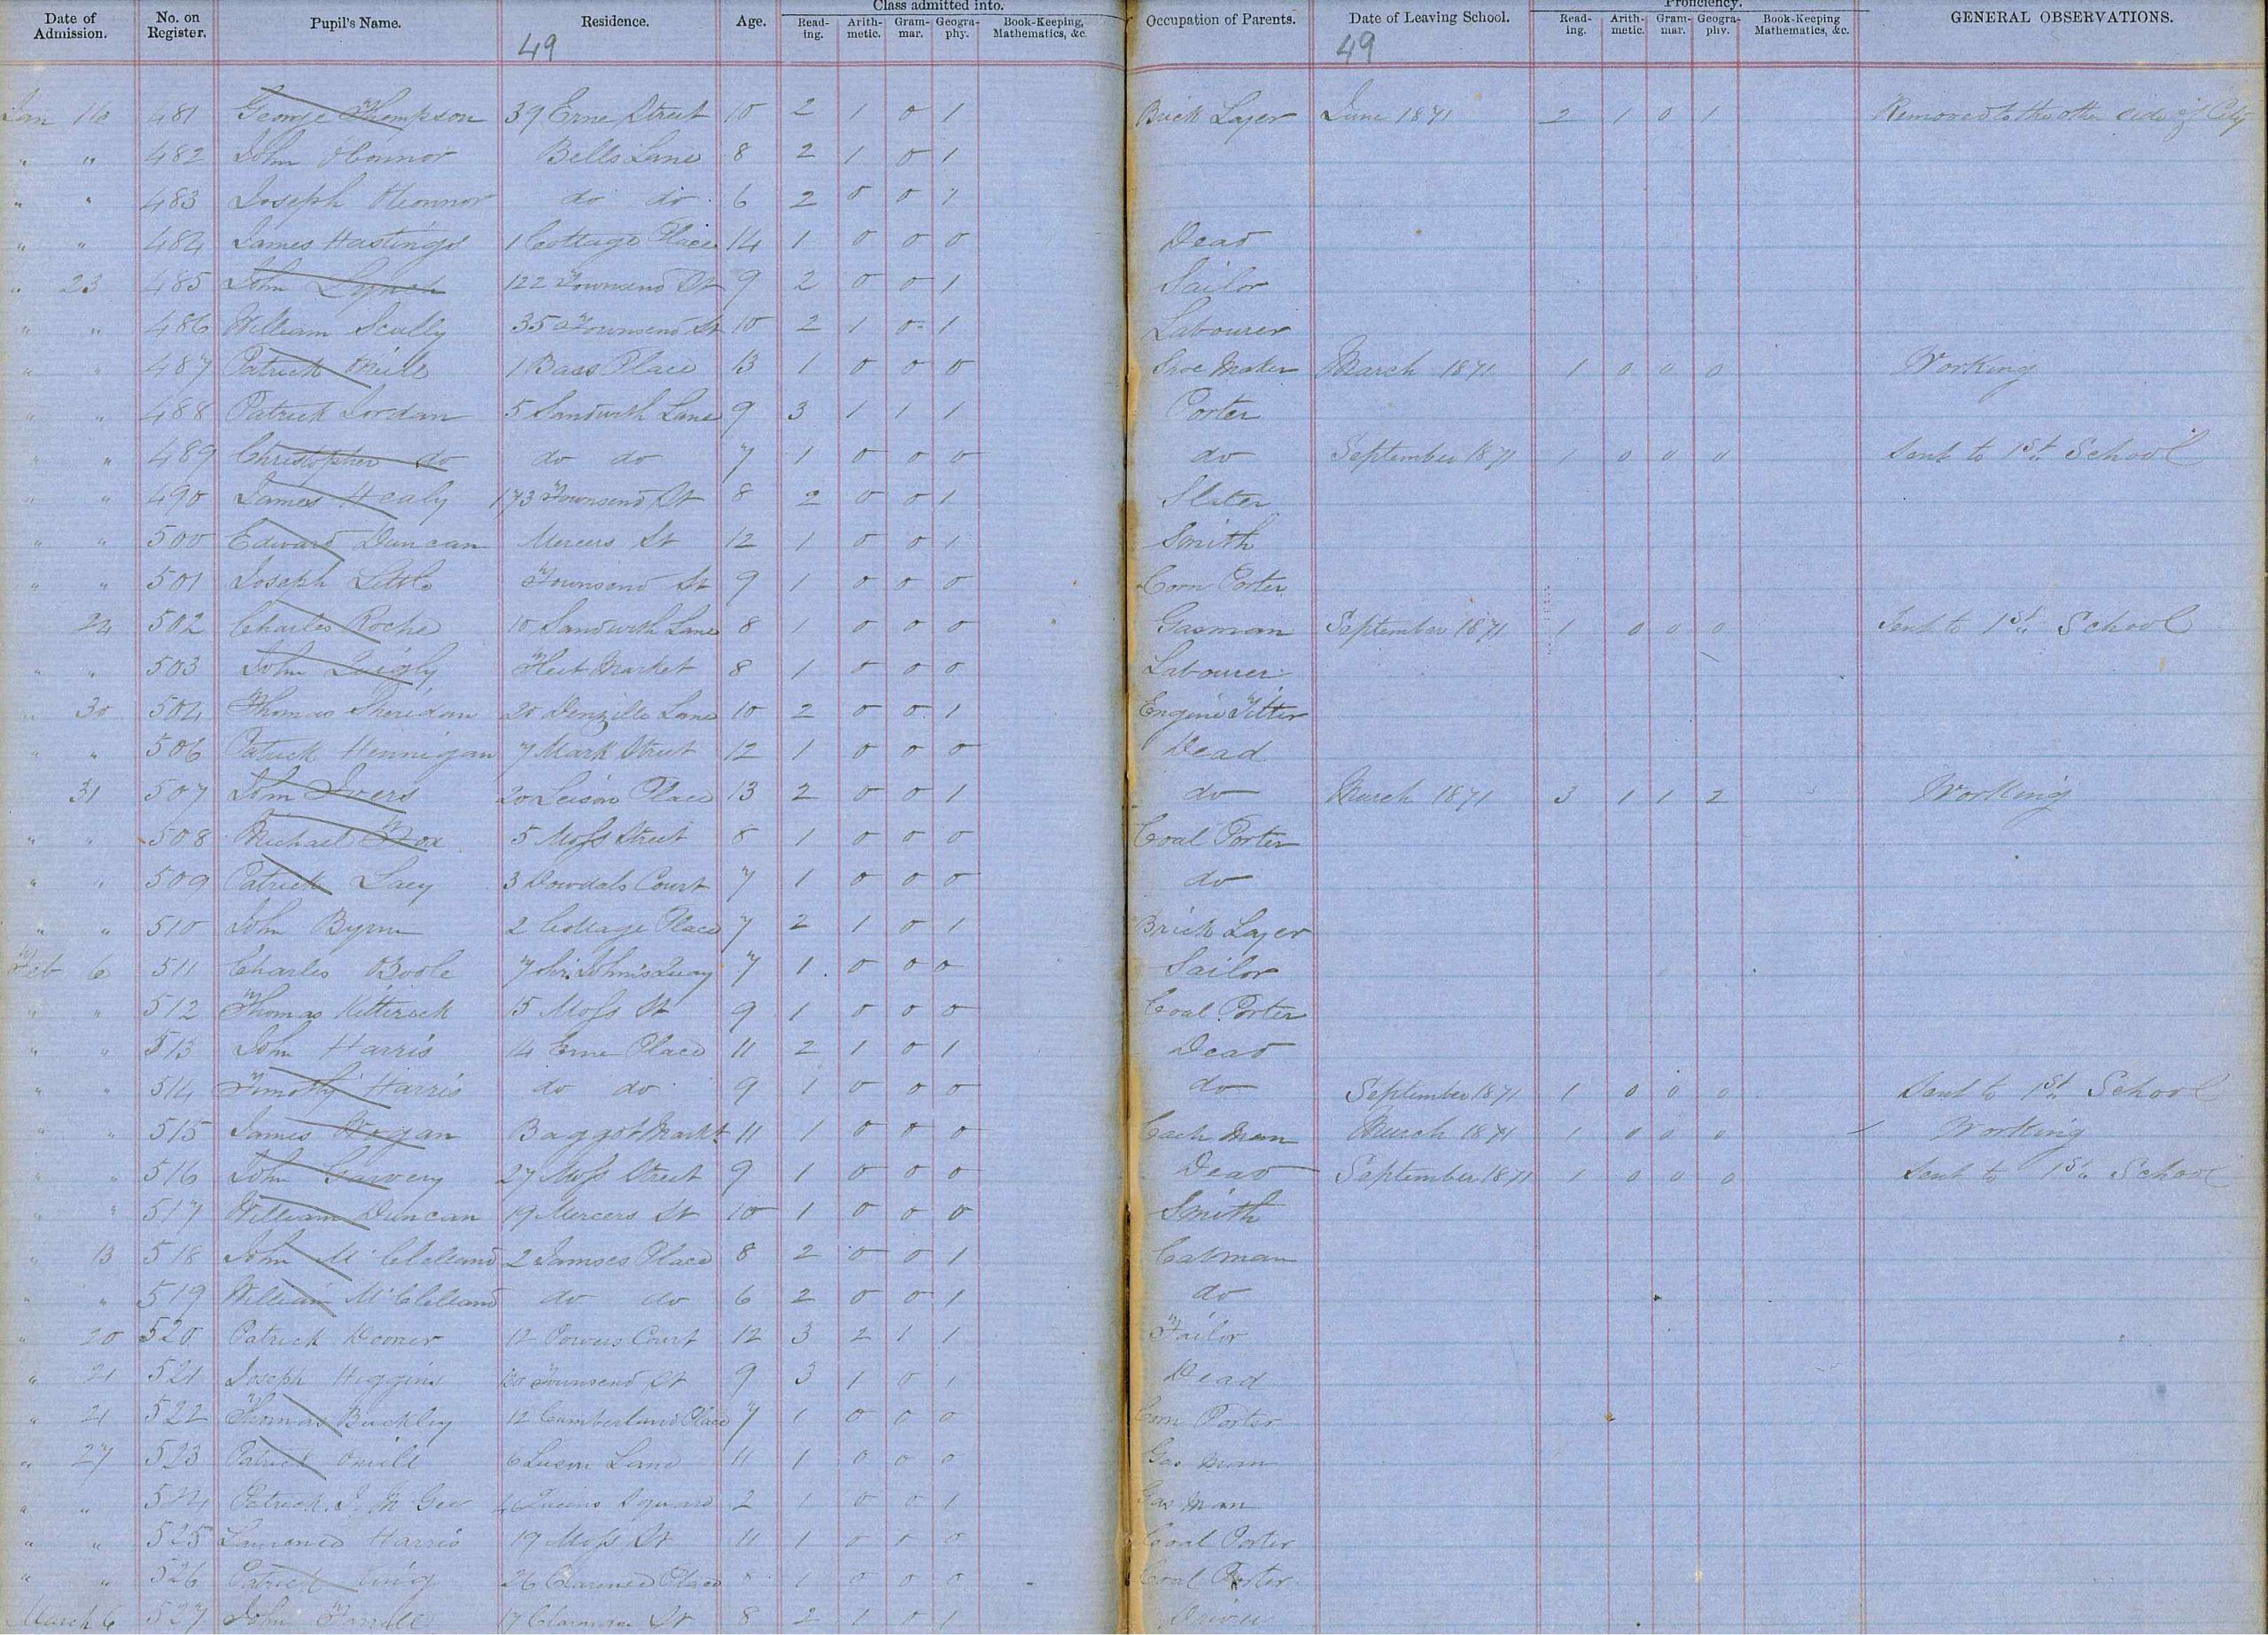 Date of Admission. No. on Register. Pupil's Name. Residence. Age. Class admitted into. Read-ing. Arith-metic. Gram-mar. Geogra-phy. Book-Keeping, Mathematics, &c. Occupation of Parents. Date of Leaving School. Proficiency. Read-ing. Arith-metic. Gram-mar. Geogra-phy. Book-Keeping Mathematics, &c. GENERAL OBSERVATIONS.
49 49
Jan 16 481 George Thompson 39 Erne Street 10 2 1 0 1 Brick Layer June 1871 2 1 0 1 Removed to the other side of City
" " 482 John O'Connor Bells Lane 8 2 1 0 1
" " 483 Joseph OConnor do do 6 2 0 0 1
" " 484 James Hastings 1 Cottage Place 14 1 0 0 0 Dead
" 23 485 John Lynch 122 Townsend St 9 2 0 0 1 Sailor
" " 486 William Scully 35 Townsend St 10 2 1 0 1 Labourer
" " 487 Patrick Oneill 1 Bass Place 13 1 0 0 0 Shoe Maker March 1871 1 0 0 0 Working
" " 488 Patrick Jordan 5 Sandwith Lane 9 3 1 1 1 Porter
" " 489 Christopher do do do 7 1 0 0 0 do September 1871 1 0 0 0 Sent to 1st School
" " 490 James Healy 173 Townsend St 8 2 0 0 1 Slater
" " 500 Edward Duncan Mercers St 12 1 0 0 1 Smith
" " 501 Joseph Little Townsend St 9 1 0 0 0 Corn Porter
24 502 Charles Roche 10 Sandwith Lane 8 1 0 0 0 Gasman September 1871 1 0 0 0 Sent to 1st School
" " 503 John Quigly Fleet Market 8 1 0 0 0 Labourer
" 30 504 Thomas Sheridan 20 Denzille Lane 10 2 0 0 1 Engine Fitter
" " 506 Patrick Hennigan 7 Mark Street 12 1 0 0 0 Dead
31 507 John Ivers 20 Place 13 2 0 0 1 do March 1871 3 1 1 2 Working
" " 508 Michael Fox 5 Moss Street 8 1 0 0 0 Coal Porter
" " 509 Patrick Lacy 3 Dowdals Court 7 1 0 0 0 do
" " 510 John Byrne 2 Cottage Place 7 2 1 0 1 Brick Layer
Feb 6 511 Charles Boole 7 Sir John's Quay 7 1 0 0 0 Sailor
" " 512 Thomas Kitterick 15 Moss St 9 1 0 0 0 Coal Porter
" " 513 John Harris 14 Erne Place 11 2 1 0 1 Dead
" " 514 Timothy Harris do do 9 1 0 0 0 do September 1871 1 0 0 0 Sent to 1st School
" " 515 James Wogan Baggot Markt 11 1 0 0 0 Cach man March 1871 1 0 0 0 Working
" " 516 John Garvery 27 Moss Street 9 1 0 0 0 Dead September 1871 1 0 0 0 Sent to 1st School
" " 517 William Duncan 19 Mercers St 10 1 0 0 0 Smith
" 13 518 John McClelland 2 Jamses Place 8 2 0 0 1 Cabman
" " 519 William McClelland do do 6 2 0 0 1 do
" 20 520 Patrick 12 Powers Court 12 3 2 1 1 Tailor
" 21 521 Joseph Higgins Townsend St 9 3 1 0 1 Dead
" 21 522 Thomas Buckley 12 Cumberland Place 7 1 0 0 0 Corn Porter
" 27 523 Patrick Oneill 6 Lane 11 1 0 0 0 Gas man
" " 524 Patrick J. McGee 46 Square 2 1 0 0 1 Gas man
" " 525 Laurence Harris 19 Moss St 11 1 0 0 0 Coal Porter
" " 526 Patrick King 26 Clarence Place 1 0 0 0 Coal Porter
March 6 527 John Farrell 17 St 8 2 1 0 1 Driver